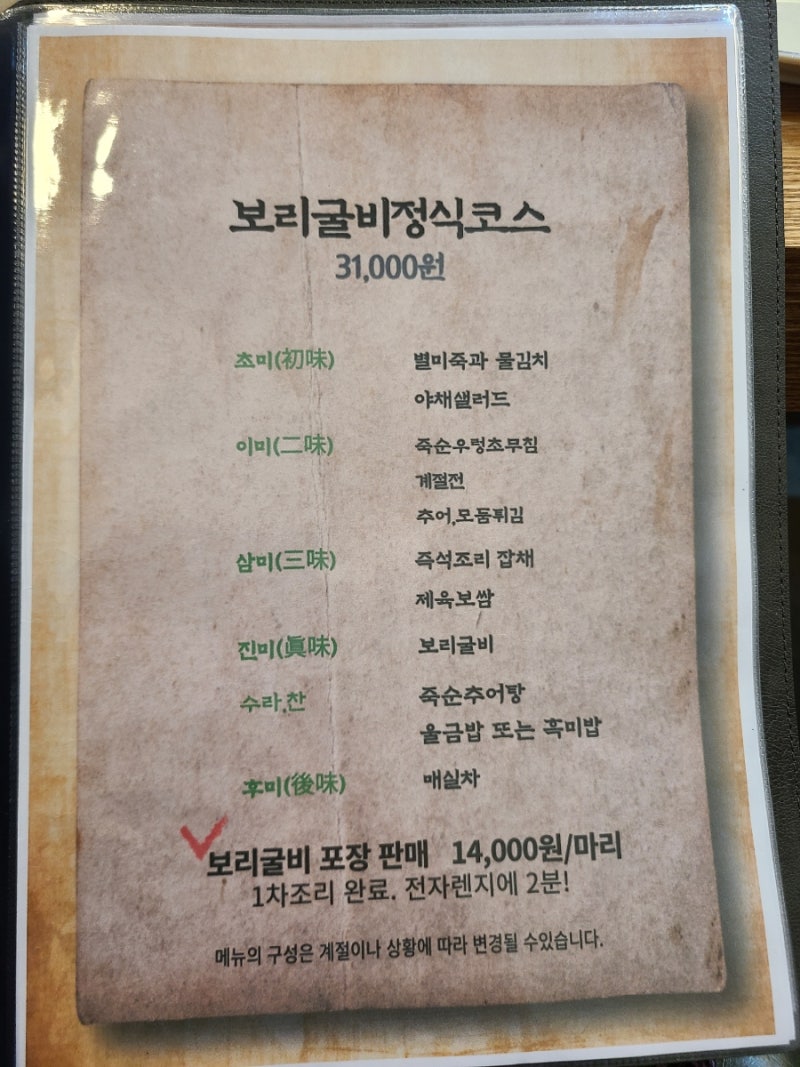 보리굴비정식코스
31,000원
초미(初味) 별미죽과 물김치
야채샐러드
이미(二味) 죽순우렁초무침
계절전
추어,모둠튀김
삼미(三味) 즉석조리 잡채
제육보쌈
진미(眞味) 보리굴비
수라,찬 죽순추어탕
울금밥 또는 흑미밥
후미(後味) 매실차
보리굴비 포장 판매 14,000원/마리
1차조리 완료. 전자렌지에 2분!
메뉴의 구성은 계절이나 상황에 따라 변경될 수있습니다.